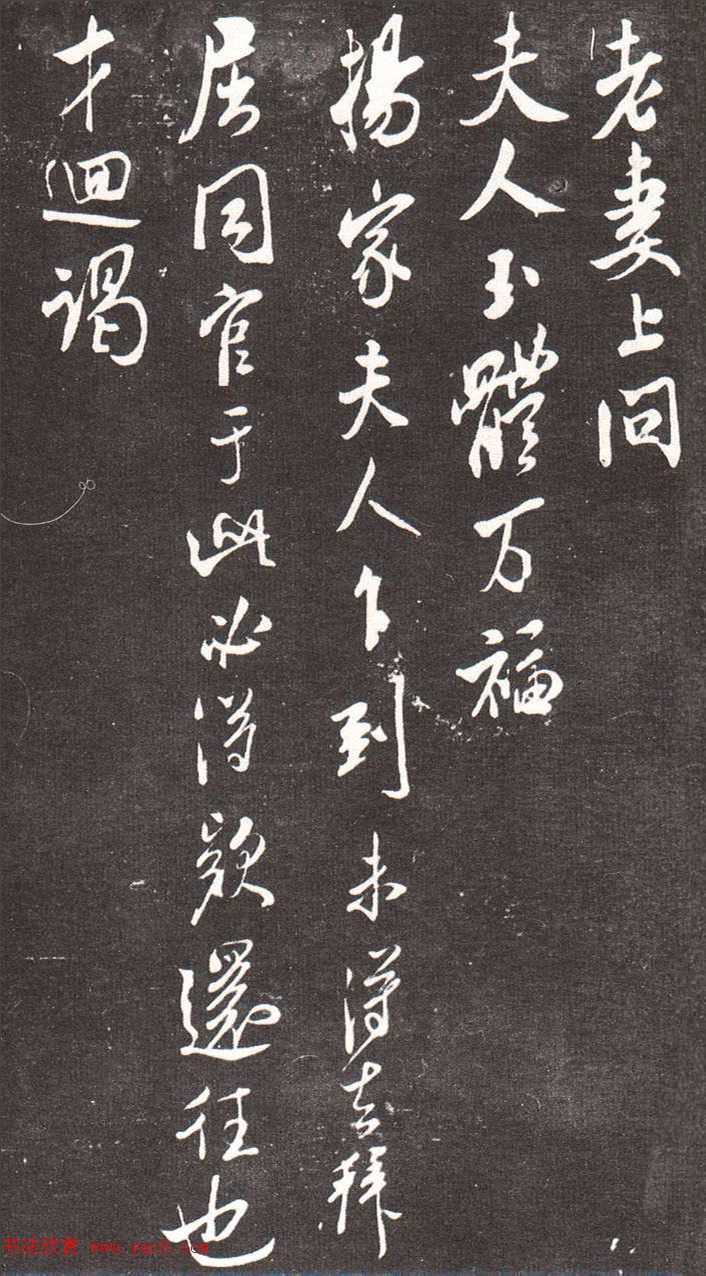 老妻上問
夫人玉體万福
揚家夫人乍到未得去拜
居同官于此必得欵還往也
才迴謁
书法欣赏 www.yac8.com